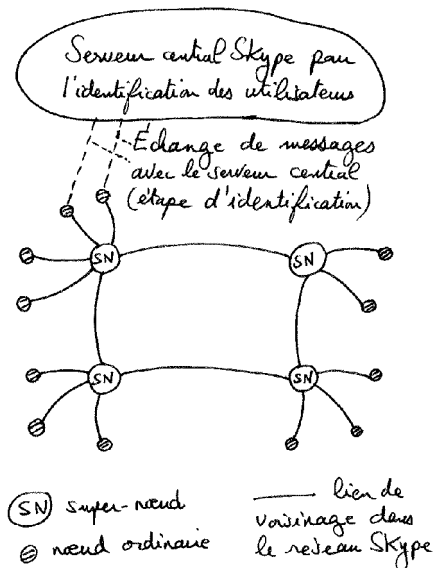 Serveur central Skype pour
l'identification des utilisateurs
Échange de messages
avec le serveur central
(étape d'identification)
SN
SN
SN
SN
SN super-nœud
nœud ordinaire
lien de
voisinage dans
le réseau Skype